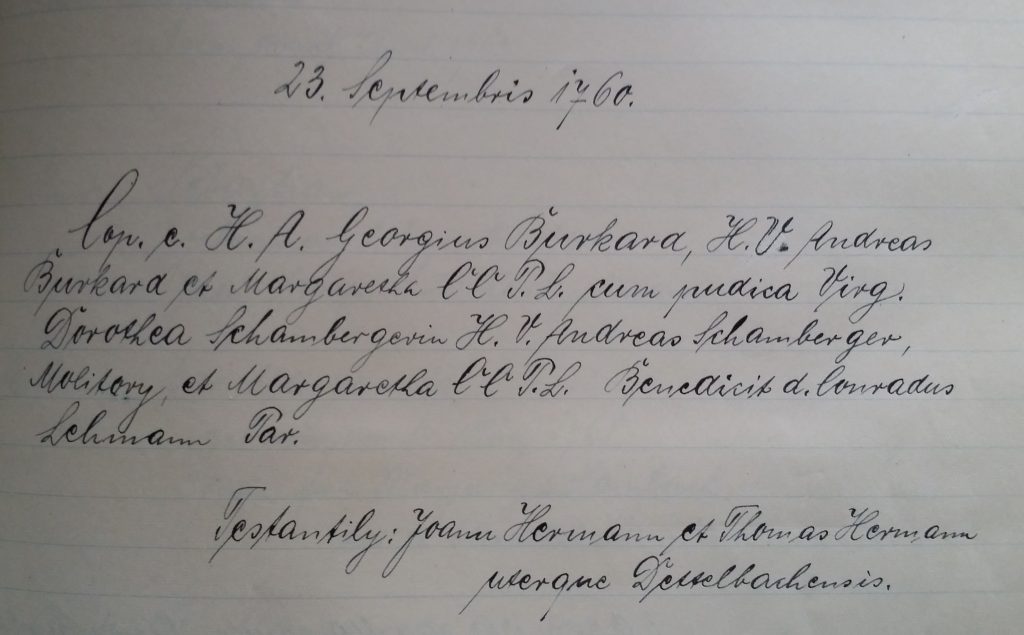 23. Septembris 1760.
Cop. e. H. A. Georgius Burkard, H. V. Andreas
Burkard et Margaretha CC P. L. cum pudica Virg.
Dorothea Schambergerin H. V. Andreas Schamberger,
Molitory, et Margaretha CC P. L. Benedixit d. Conradus
Lehmann Par.
Testantily: Joann Hermann et Thomas Hermann
uterque Dettelbachensis.